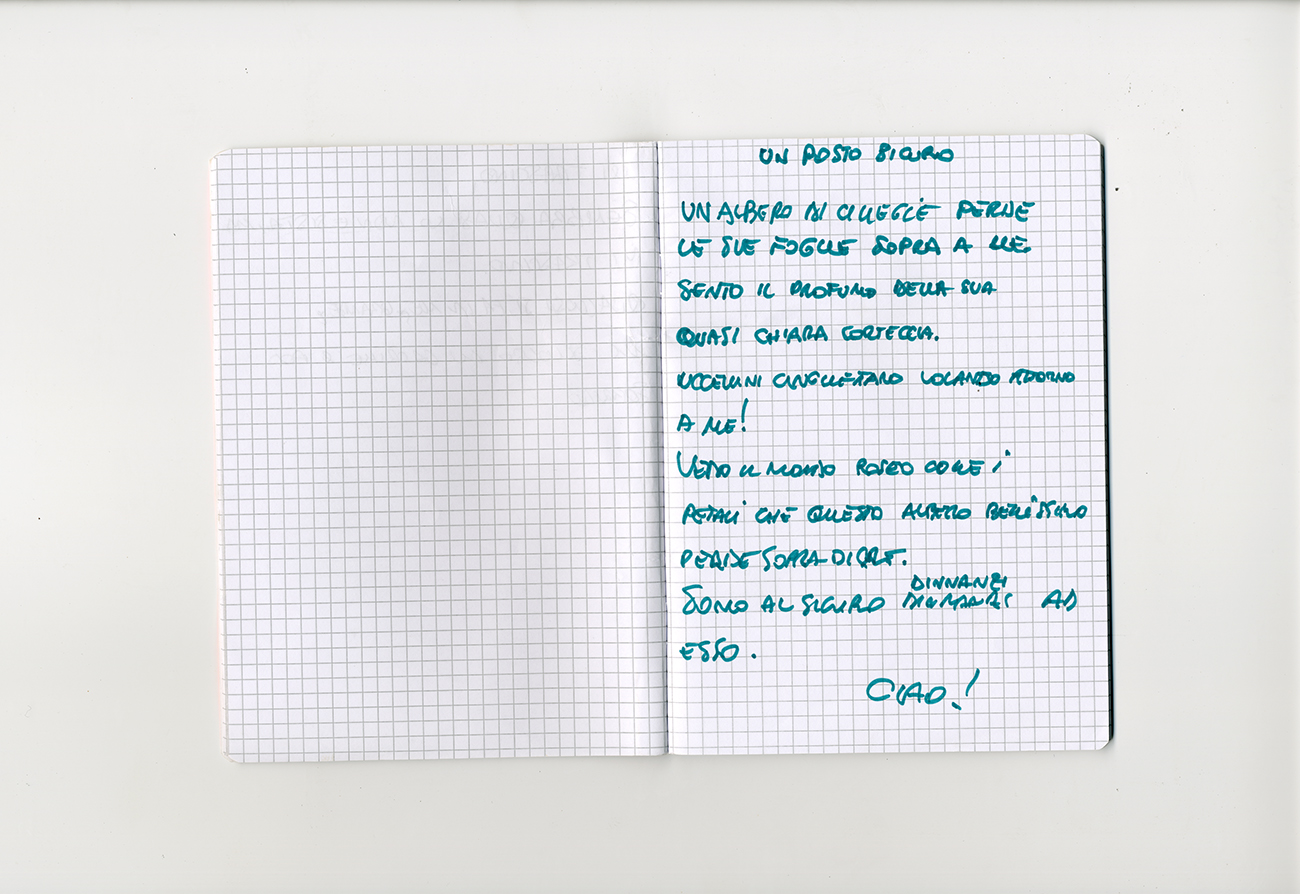 UN POSTO SICURO
UN ALBERO DI CILIEGIE PERDE
LE SUE FOGLIE SOPRA A ME.
SENTO IL PROFUMO DELLA SUA
QUASI CHIARA CORTECCIA.
UCCELLINI CINGUETTANO VOLANDO ATTORNO
A ME!
VEDO IL MONDO ROSEO COME i
PETALI CHE QUESTO ALBERO BELLISSIMO
PERDE SOPRA DI
DINNANZI
SONO AL SICURO DINNANZI AD
ESSO.
CIAO!